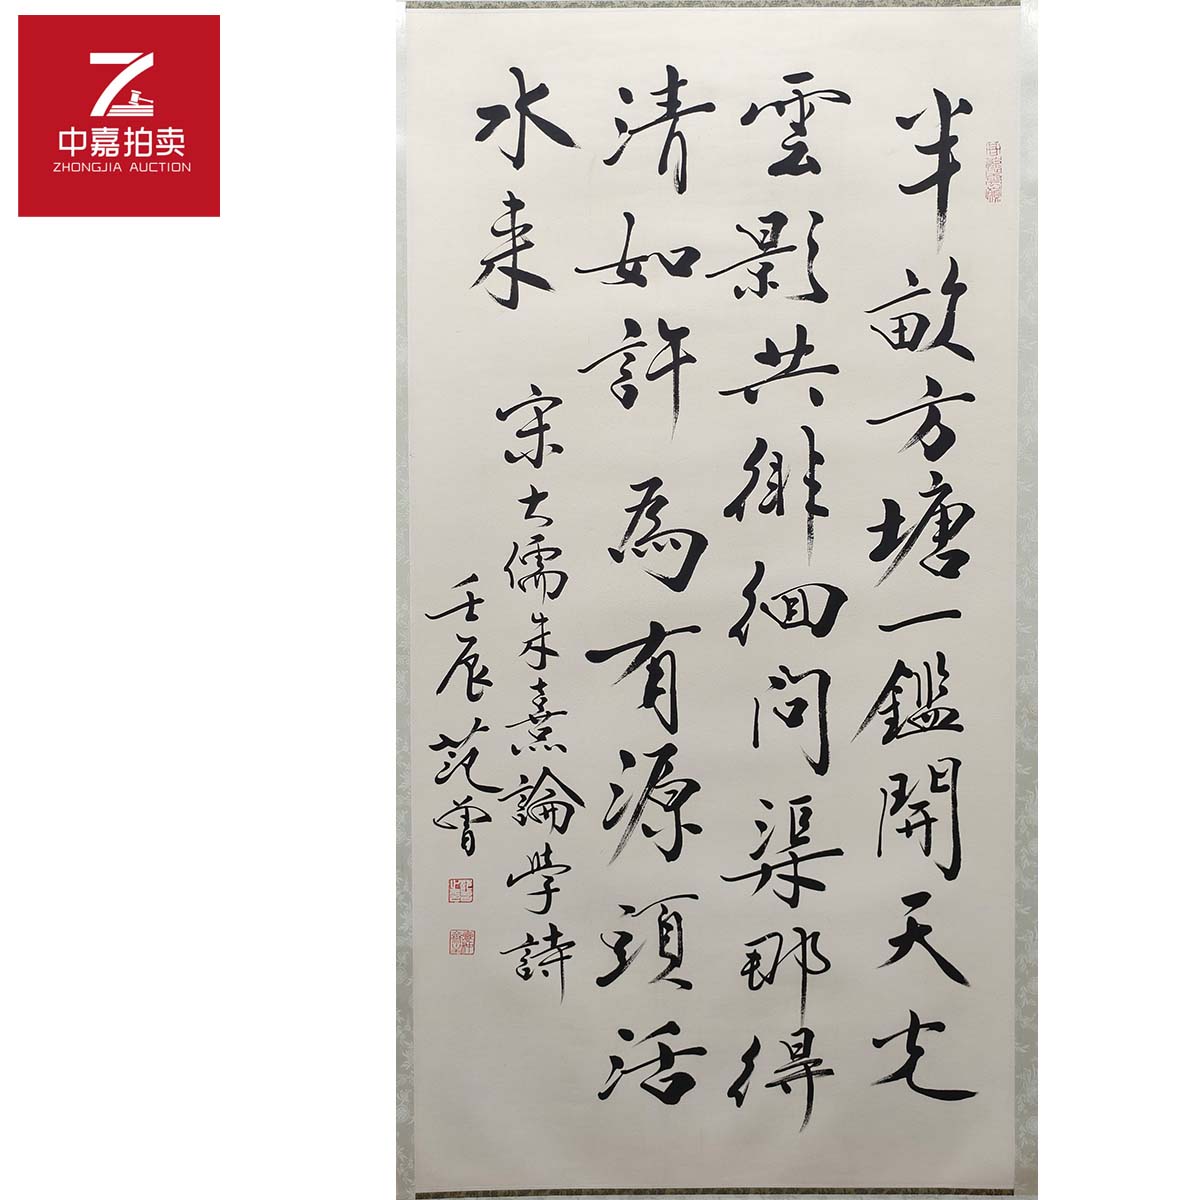 中嘉拍卖
ZHONGJIA AUCTION
半畝方塘一鑑開天光
雲影共徘徊問渠那得
清如許為有源頭活
水来
宋大儒朱熹論學詩
壬辰范曾